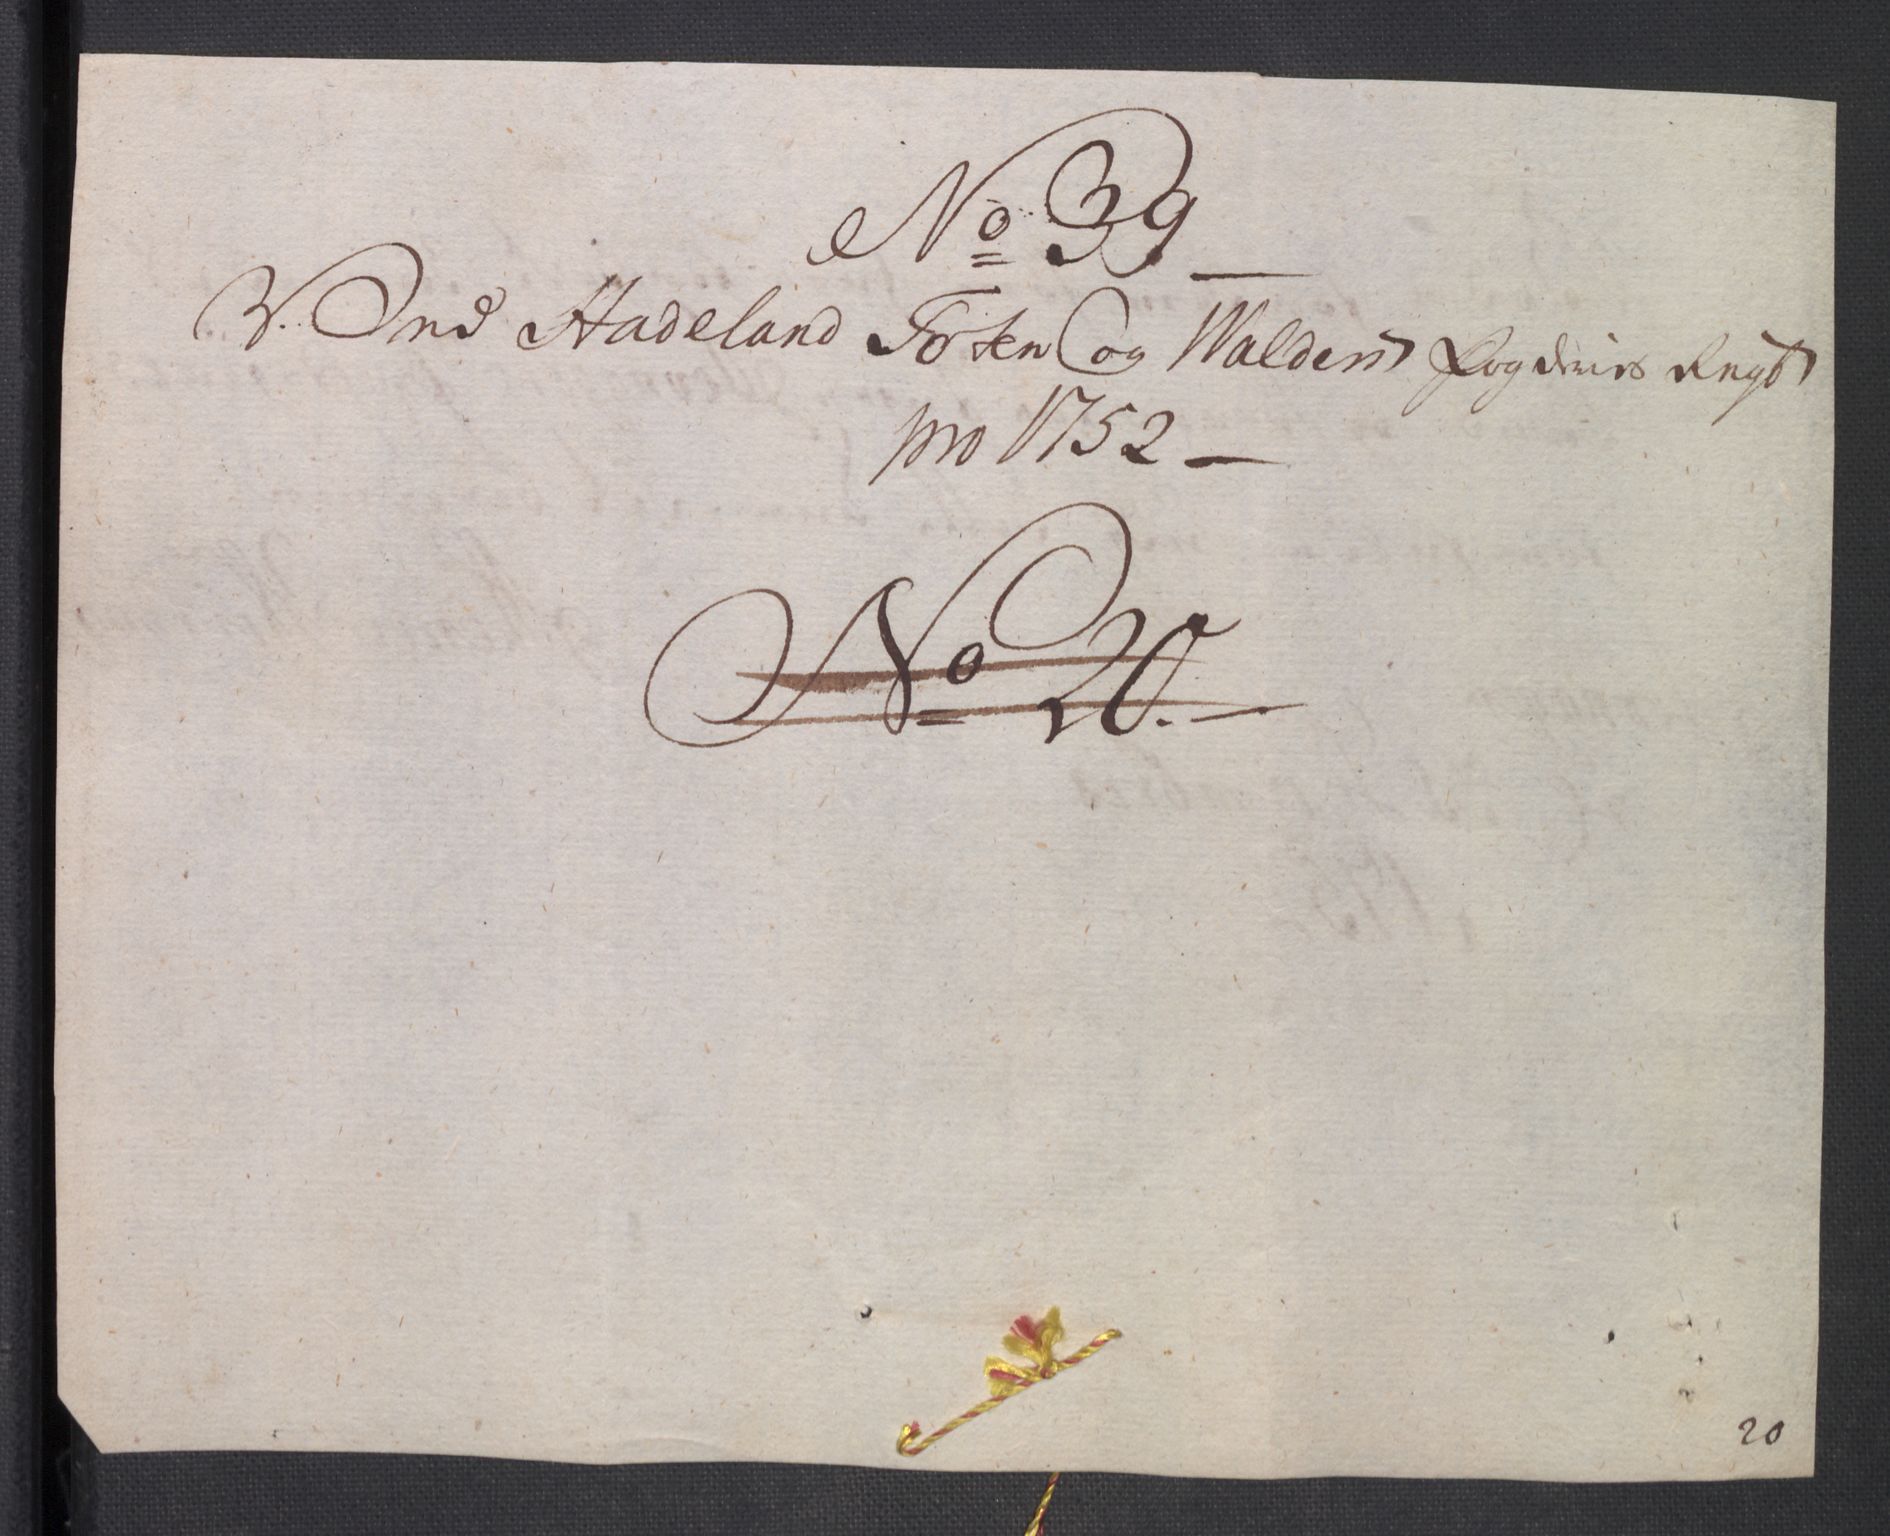 No 39
V. Ved Hadeland Toten Og Walders Fogderies Regnsk
pro 1752
No 20.
20